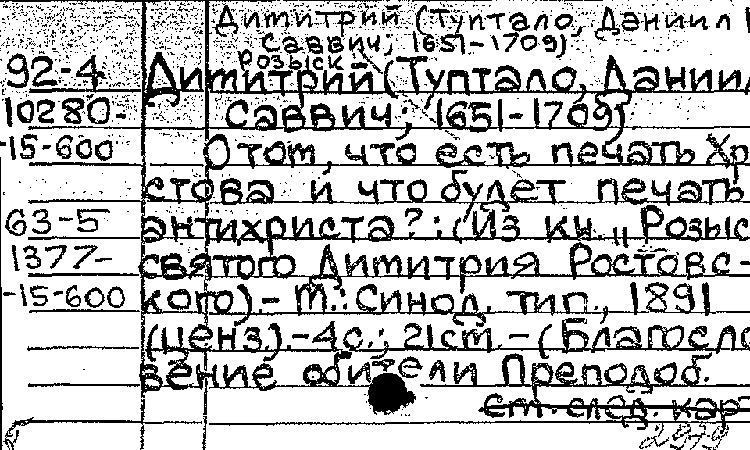 Димитрий (Туптало, Даниил
Саввич; 1651-1709)
Розыск
92-4 Димитрий (Туптало, Даниил
10280- Саввич; 1651-1709).
-15-600 О том, что есть печать Хри
стова и что будет печать
63-5 антихриста?: (Из кн „Розыс
1377- святого Димитрия Ростовс-
-15-600 кого).- М.: Синод. тип., 1891
(ценз.).-4с.; 21см.-(Благосло
вение обители Преподоб.
см. след. кар
2979